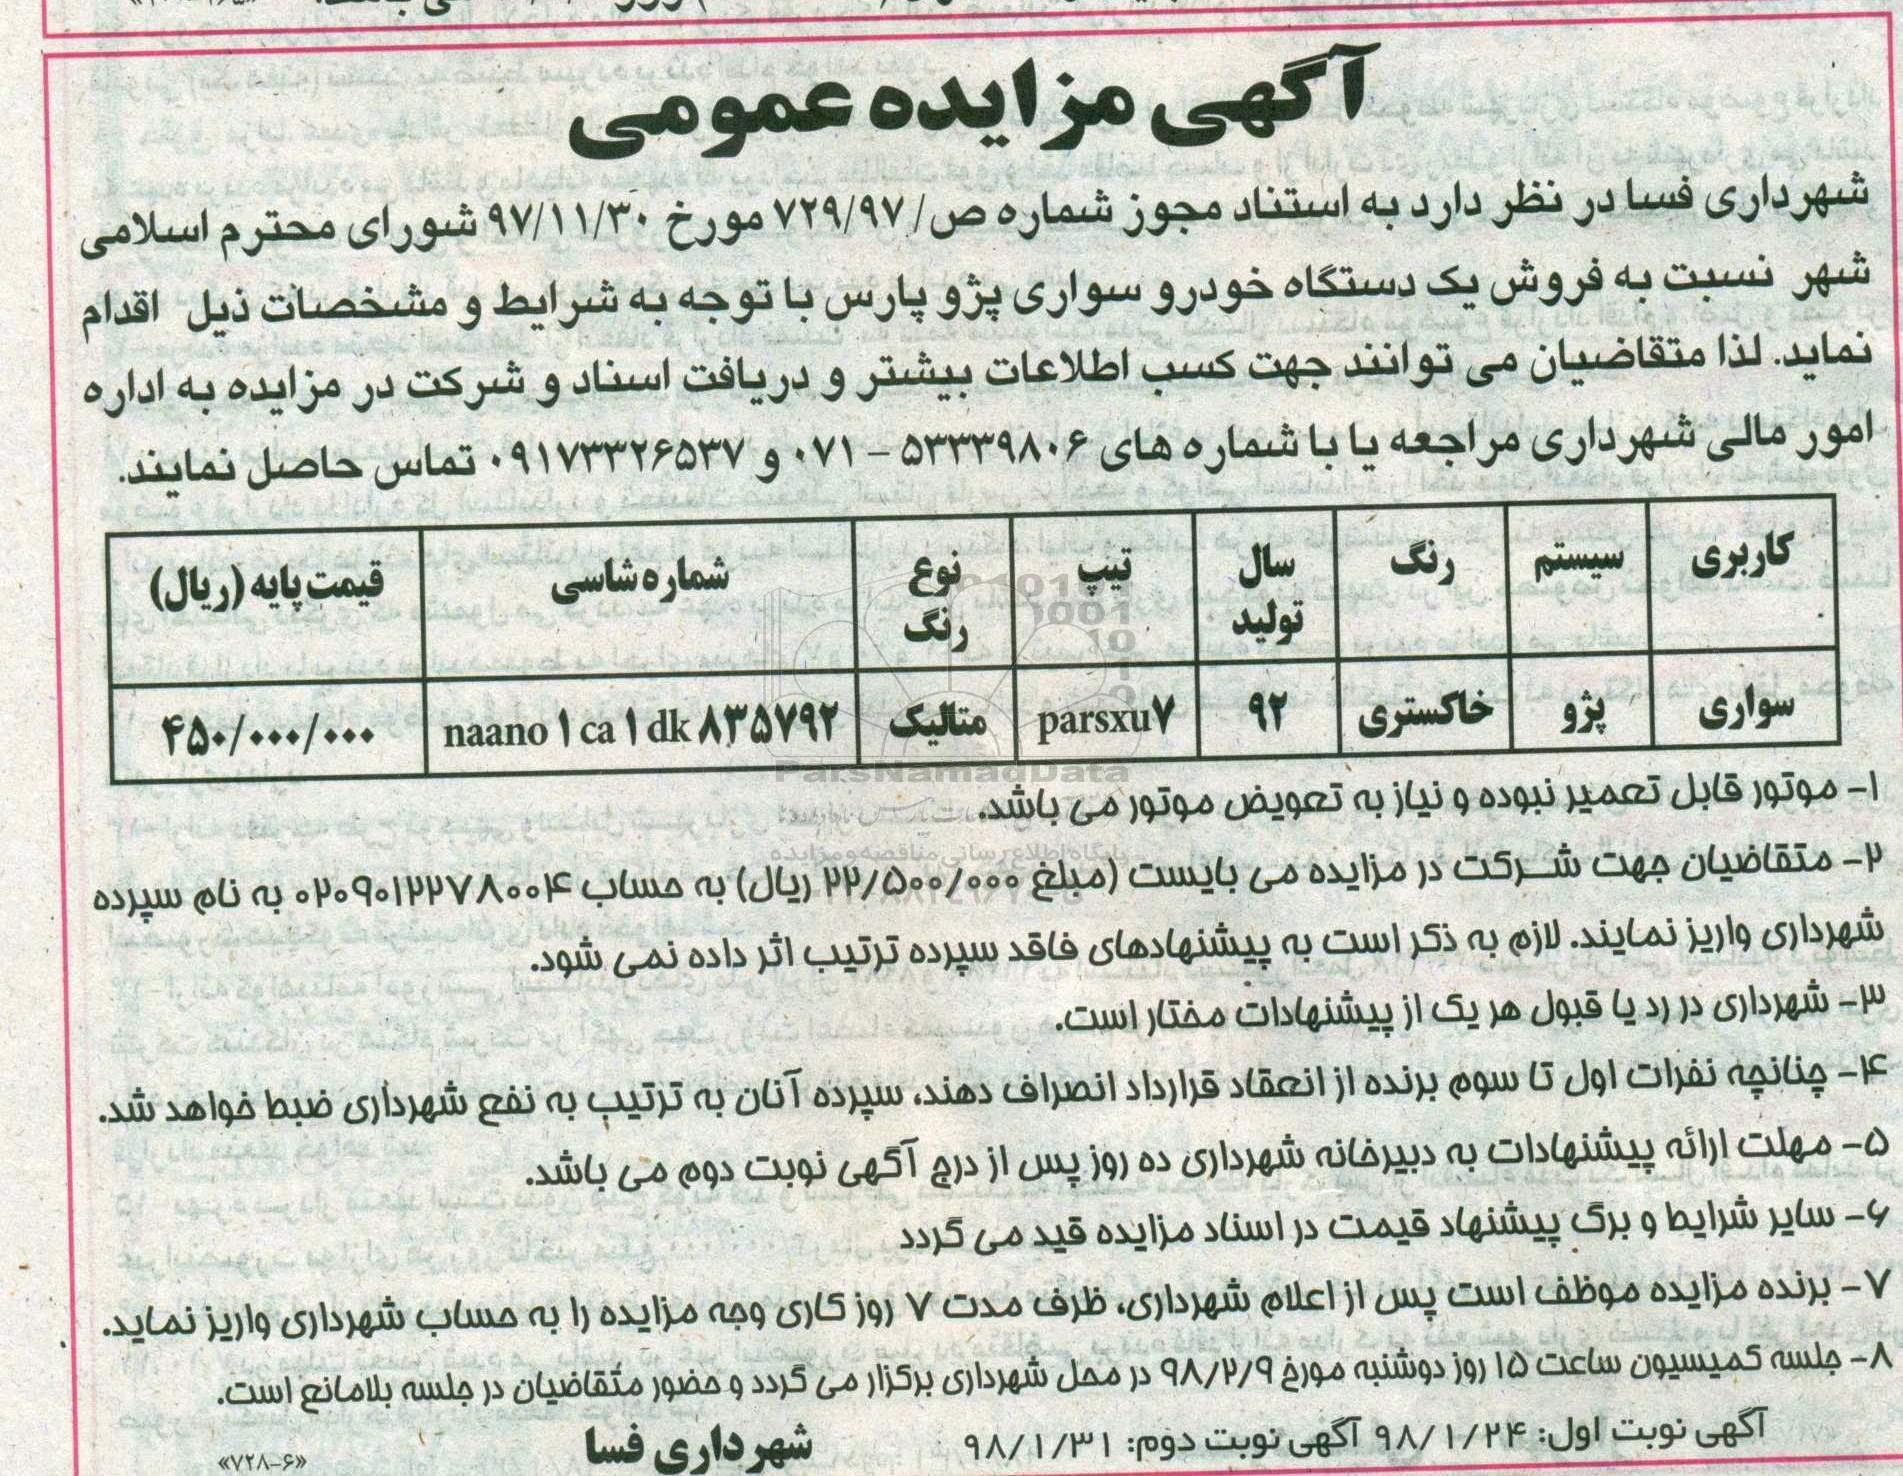 آگهی مزایده عمومی
شهرداری فسا در نظر دارد به استناد مجوز شماره ص/ ۷۲۹/۹۷ مورخ ۹۷/۱۱/۳۰ شورای محترم اسلامی
شهر نسبت به فروش یک دستگاه خودرو سواری پژو پارس با توجه به شرایط و مشخصات ذیل اقدام
نماید. لذا متقاضیان می توانند جهت کسب اطلاعات بیشتر و دریافت اسناد و شرکت در مزایده به اداره
امور مالی شهرداری مراجعه یا با شماره های ۵۳۳۳۹۸۰۶ – ۰۷۱ و ۰۹۱۷۳۳۲۶۵۳۷ تماس حاصل نمایند.
کاربری سیستم رنگ سال تولید تیپ نوع رنگ شماره شاسی قیمت پایه (ریال)
سواری پژو خاکستری ۹۲ parsxu۷ متالیک naano۱ca۱dk۸۳۵۷۹۲ ۴۵۰/۰۰۰/۰۰۰
۱- موتور قابل تعمیر نبوده و نیاز به تعویض موتور می باشد.
۲- متقاضیان جهت شرکت در مزایده می بایست (مبلغ ۲۲/۵۰۰/۰۰۰ ریال) به حساب ۰۲۰۹۰۱۲۲۷۸۰۰۴ به نام سپرده
شهرداری واریز نمایند. لازم به ذکر است به پیشنهادهای فاقد سپرده ترتیب اثر داده نمی شود.
۳- شهرداری در رد یا قبول هر یک از پیشنهادات مختار است.
۴- چنانچه نفرات اول تا سوم برنده از انعقاد قرارداد انصراف دهند، سپرده آنان به ترتیب به نفع شهرداری ضبط خواهد شد.
۵- مهلت ارائه پیشنهادات به دبیرخانه شهرداری ده روز پس از درج آگهی نوبت دوم می باشد.
۶- سایر شرایط و برگ پیشنهاد قیمت در اسناد مزایده قید می گردد
۷- برنده مزایده موظف است پس از اعلام شهرداری، ظرف مدت ۷ روز کاری وجه مزایده را به حساب شهرداری واریز نماید.
۸- جلسه کمیسیون ساعت ۱۵ روز دوشنبه مورخ ۹۸/۲/۹ در محل شهرداری برگزار می گردد و حضور متقاضیان در جلسه بلامانع است.
آگهی نوبت اول: ۹۸/۱/۲۴ آگهی نوبت دوم: ۹۸/۱/۳۱
شهرداری فسا
«۷۲۸-۶»
ParsNamadData
پایگاه اطلاع رسانی مناقصه و مزایده